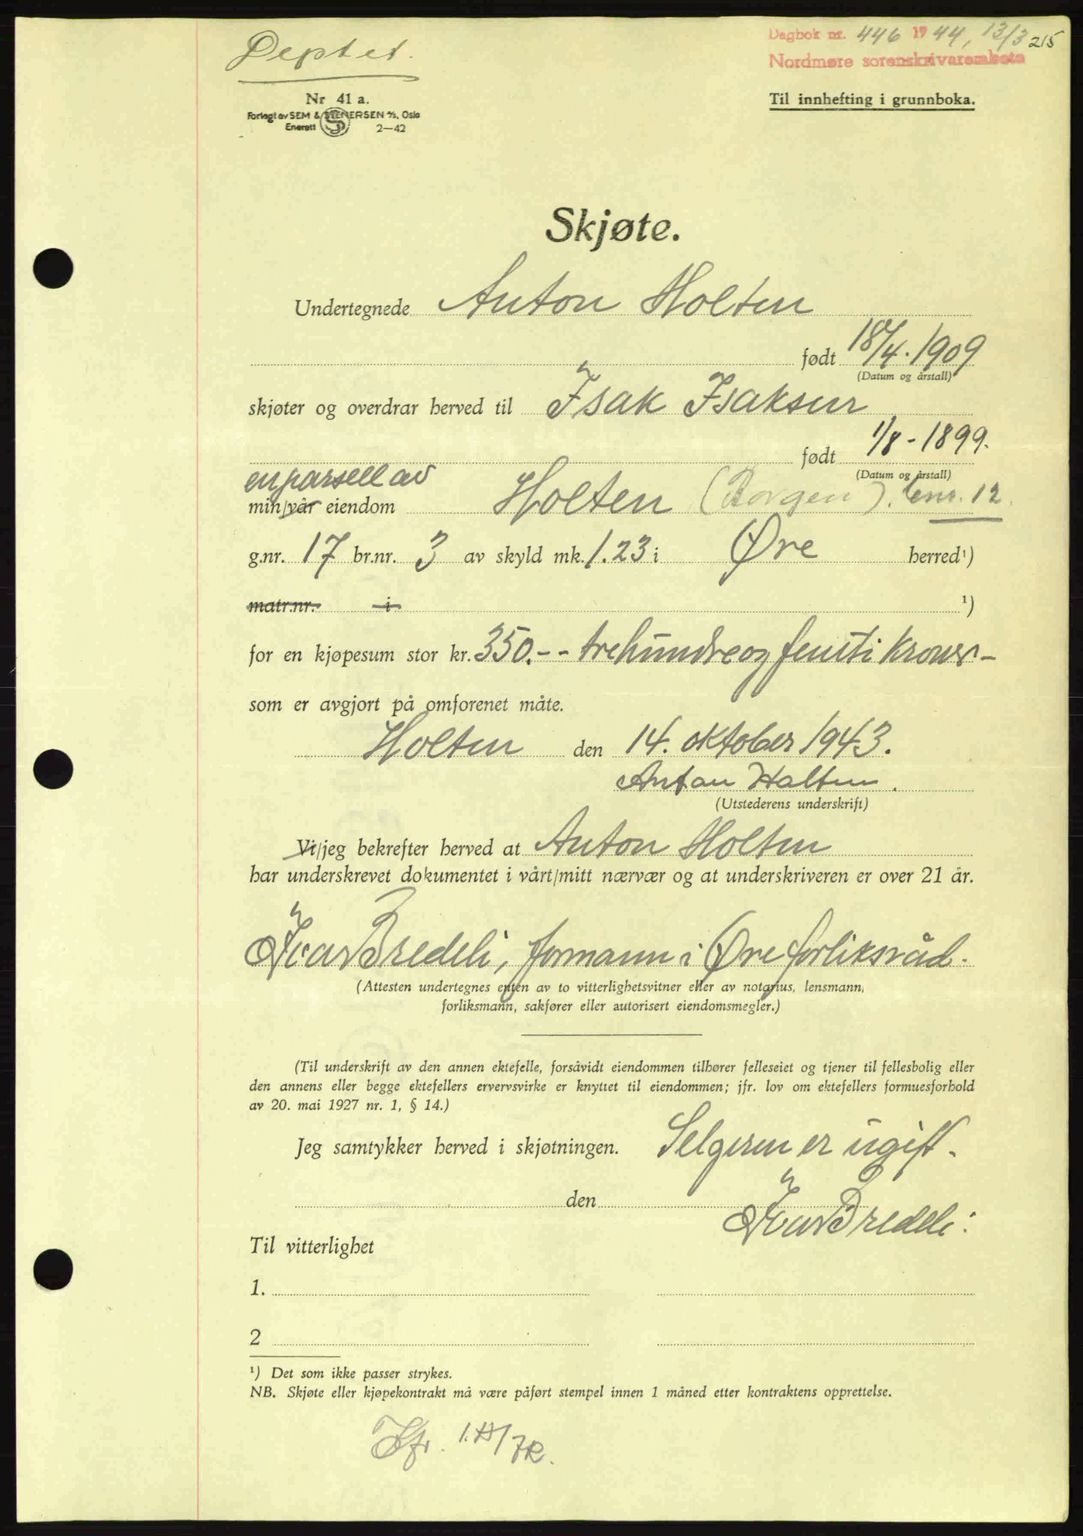 Deptet.
Dagbok nr. 446 1944, 13/3 215
Nordmøre sorenskrivarembete
Nr 41 a.
Til innhefting i grunnboka.
Forlagt av SEM & STENERSEN A/S, Oslo
Enerett 2—42
Skjøte.
Undertegnede Anton Holten
født 18/4. 1909
(Datum og årstall)
skjøter og overdrar herved til Isak Isaksen
født 1/8 - 1899.
(Datum og årstall)
en parsell av
min/vår eiendom Holten (Borgen). lnr. 12
g.nr. 17 br.nr. 3 av skyld mk. 1.23 i Øre herred¹)
matr.nr. i ¹)
for en kjøpesum stor kr. 350.-- trehundreogfemti kroner-
som er avgjort på omforenet måte.
Holten den 14. oktober 1943.
Anton Holten.
(Utstederens underskrift)
Vi/jeg bekrefter herved at Anton Holten
har underskrevet dokumentet i vårt/mitt nærvær og at underskriveren er over 21 år.
Ivar Bredeli, formann i Øre forliksråd.
(Attesten undertegnes enten av to vitterlighetsvitner eller av notarius, lensmann,
forliksmann, sakfører eller autorisert eiendomsmegler.)
(Til underskrift av den annen ektefelle, forsåvidt eiendommen tilhører felleseiet og tjener til fellesbolig eller
den annens eller begge ektefellers ervervsvirke er knyttet til eiendommen; jfr. lov om ektefellers formuesforhold
av 20. mai 1927 nr. 1, § 14.)
Jeg samtykker herved i skjøtningen. Selgeren er ugift.
den
Ivar Bredeli.
Til vitterlighet
1.
2
¹) Det som ikke passer strykes.
NB. Skjøte eller kjøpekontrakt må være påført stempel innen 1 måned etter kontraktens opprettelse.